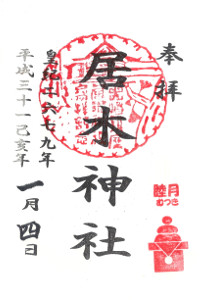 奉拝
居木神社
皇紀二六七九年
平成三十一己亥年
一月四日
睦月
むつき